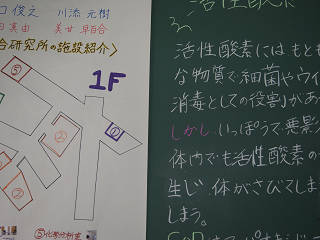 口 俊之 川添 元樹
真由 美甘 早百合
合研究所の施設紹介〉
1F
⑤
②
①
②
⑤化学分析室
活性酸素に
る。
活性酸素にはもとも
な物質で、細菌やウイ
消毒としての役割があ
しかし、いっぽうで悪影
体内でも活性酸素の
生じ、体がさびてしま
しまう。